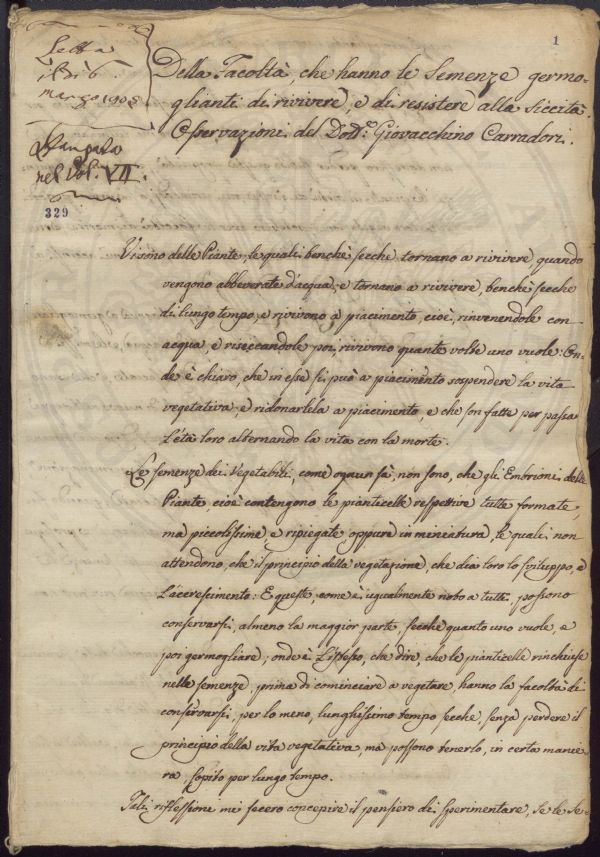 1
Letta
il dì 6
marzo 1805
Stampato
nel Vol. VII.
329
Della Facoltà che hanno le Semenze germo-
glianti di rivivere, e di resistere alla siccità.
Osservazioni del Dott.e Giovacchino Carradori.
Vi sono delle Piante, le quali benchè secche tornano a rivivere quando
vengono abbeverate d'acqua, e tornano a rivivere, benchè secche
di lungo tempo, e rivivono a piacimento, cioè, rinvenendole con
acqua, e riseccandole poi, rivivono quante volte uno vuole: On-
de è chiaro, che in esse si può a piacimento sospendere la vita
vegetativa, e ridonarlela a piacimento, e che son fatte per passar
l'età loro alternando la vita con la morte.
Le semenze dei Vegetabili, come ognun sà, non sono, che gli Embrioni delle
Piante cioè contengono le pianticelle respettive tutte formate,
ma piccolissime, e ripiegate, oppure in miniatura, le quali non
attendono, che il principio della vegetazione, che dia loro lo sviluppo, e
l'accrescimento: E queste, come è ugualmente noto a tutti, possono
conservarsi, almeno la maggior parte, secche quanto uno vuole, e
poi germogliare; onde è l'istesso, che dire, che le pianticelle rinchiuse
nelle semenze, prima di cominciare a vegetare, hanno la facoltà di
conservarsi, per lo meno, lunghissimo tempo secche, senza perdere il
principio della vita vegetativa, ma possono tenerlo, in certa manie-
ra, sopito per lungo tempo.
Tali riflessioni mi fecero concepire il pensiero di sperimentare, se le Se-